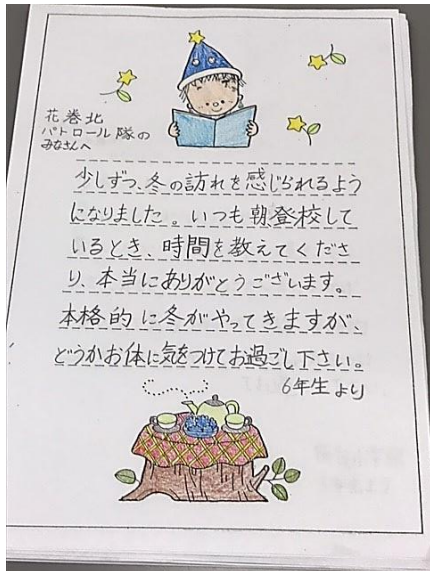 花巻北
パトロール隊の
みなさんへ
少しずつ、冬の訪れを感じられるよう
になりました。いつも朝登校して
いるとき、時間を教えてくださ
り、本当にありがとうございます。
本格的に冬がやってきますが、
どうかお体に気をつけてお過ごし下さい。
6年生より